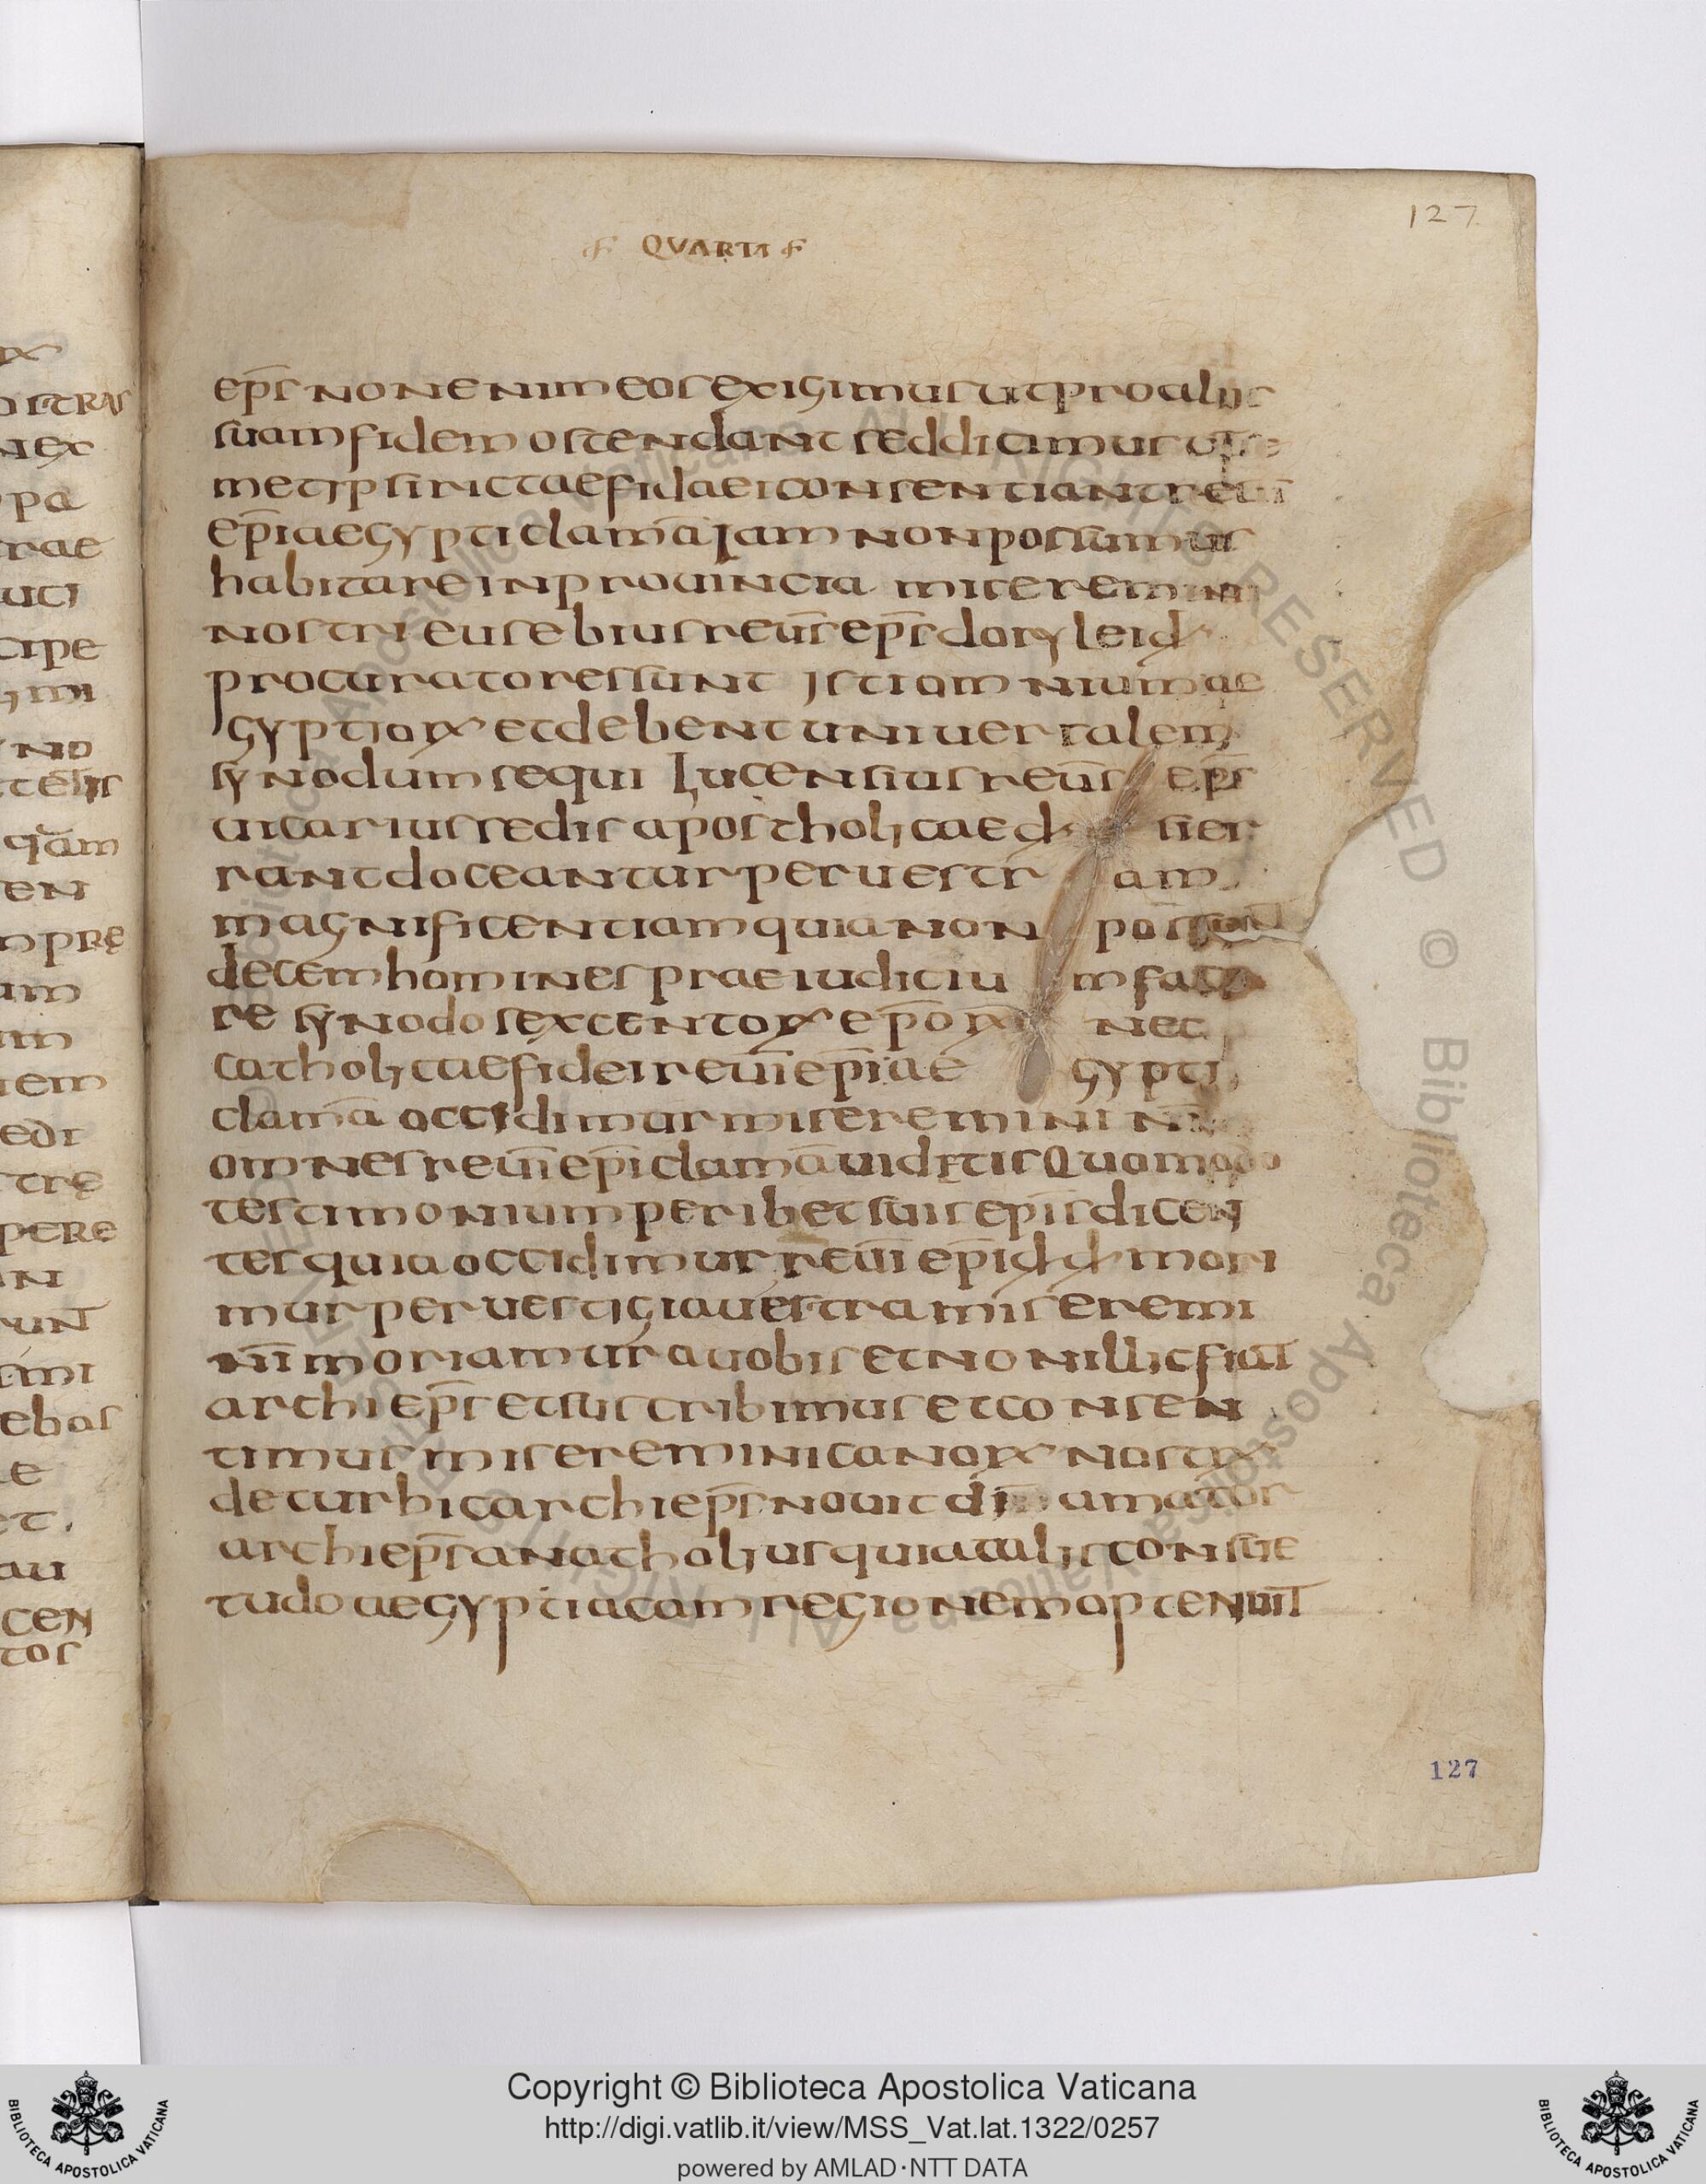 127
QVARTI
ep̄s non enim eos exigimus ut pro aliis
suam fidem ostendant sed dicimus ut se
metipsi rictae fidaei consentiant reuī
ep̄i aegypti clamā Iam non possumus
habitare in prouincia miseremini
nostri eusebius reūs ep̄s dorylei dꝫ
procuratores sunt isti omnium ae
gyptioꝝ et debent uniuersalem
synodum sequi Lucensius reūs ep̄s
uicarius sedis apostholicae dꝫ si er
rant doceantur per uestram
magnificentiam quia non possunt
decem homines praeiudicium face
re synodo sexcentoꝝ ep̄oꝝ nec
catholicae fidei reuī ep̄i aegypti
clamā occidimur miseremini nī
omnes reuī ep̄i clamā uidetis Quomodo
testimonium peribet suis ep̄is dicen
tes quia occidimur reuī ep̄i dd mori
mur per uestigia uestra miseremi
nī moriamur a uobis et non illic fiat
archiep̄s et suscribimus et consen
timus miseremini canoꝝ nostꝝ
detur hic archiep̄s nouit amator
archiep̄s anatholius quia talis consue
tudo aegyptiacam regionem optenuit
127
Copyright © Biblioteca Apostolica Vaticana
http://digi.vatlib.it/view/MSS_Vat.lat.1322/0257
powered by AMLAD·NTT DATA
BIBLIOTECA APOSTOLICA VATICANA
BIBLIOTECA APOSTOLICA VATICANA